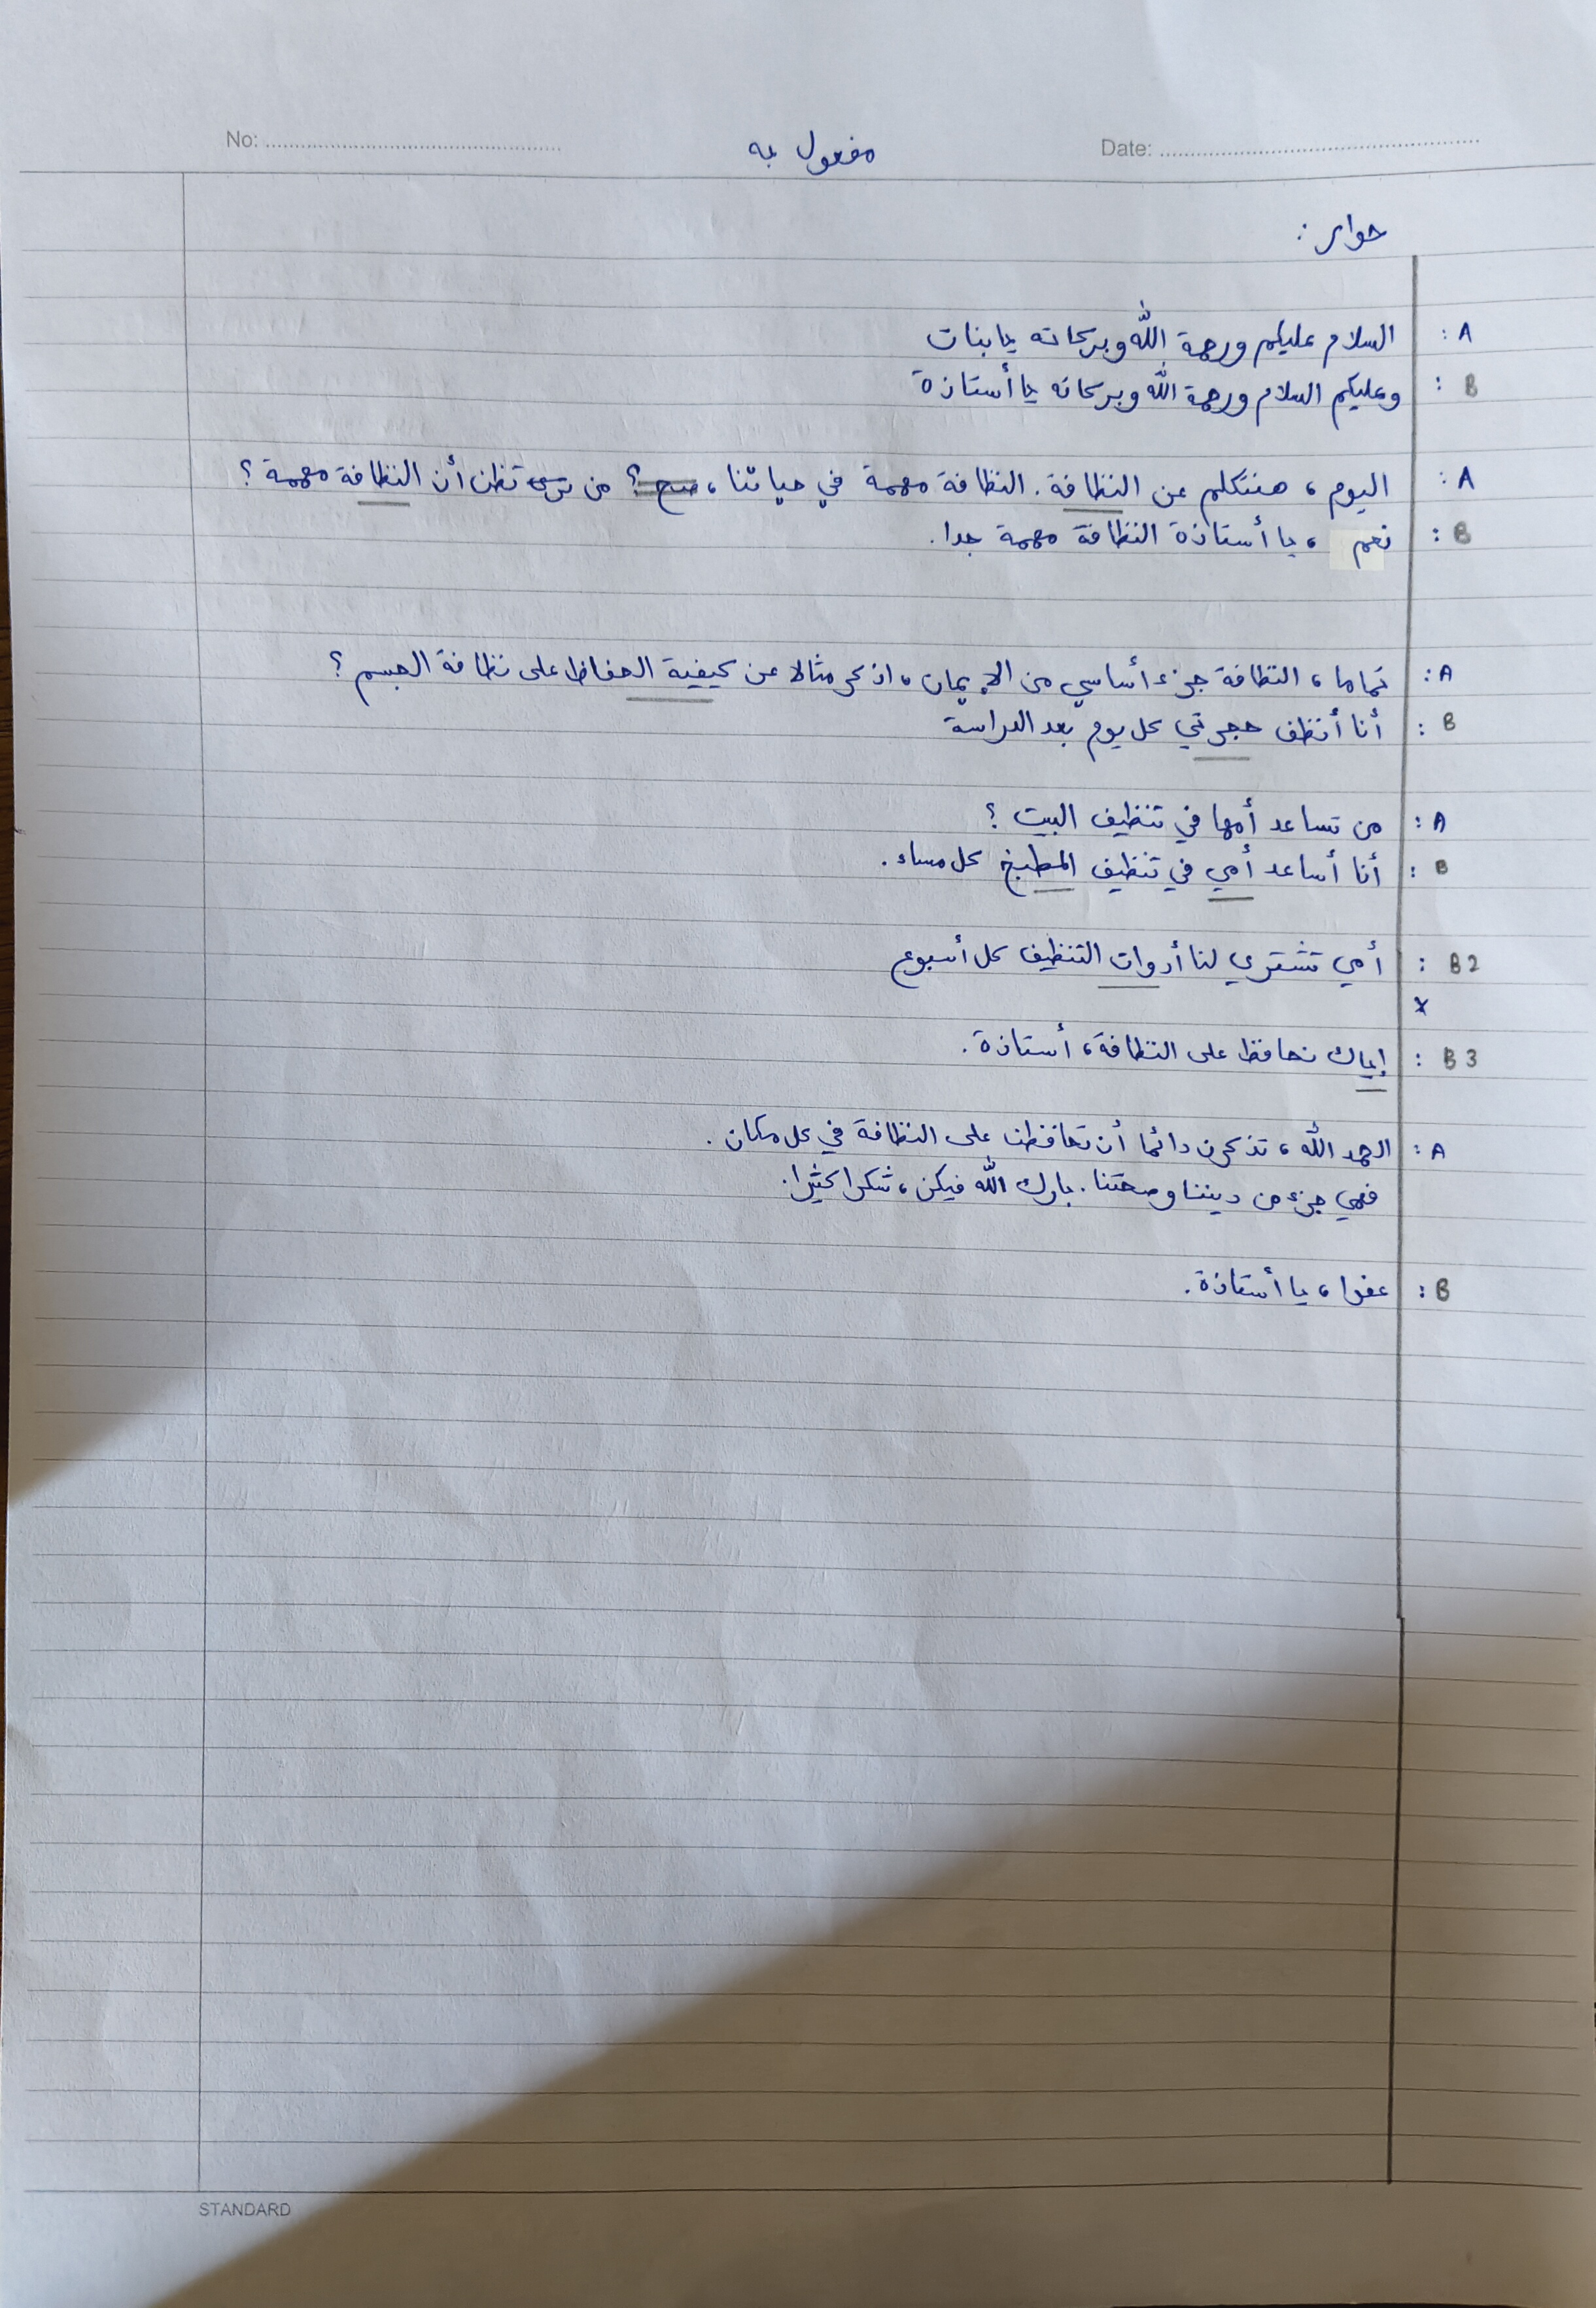 No: ........ مفعول به Date: ........
حوار :
A : السلام عليكم ورحمة الله وبركاته يا بنات
B : وعليكم السلام ورحمة الله وبركاته يا أستاذة
A : اليوم ، هنتكلم عن النظافة . النظافة مهمة في حياتنا ، صح ؟ من تظن أن النظافة مهمة ؟
B : نعم ، يا أستاذة النظافة مهمة جدا .
A : تماما ، النظافة جزء أساسي من الإيمان ، اذكر مثالا عن كيفية الحفاظ على نظافة الجسم ؟
B : أنا أنظف حجرتي كل يوم بعد الدراسة
A : من تساعد أمها في تنظيف البيت ؟
B : أنا أساعد أمي في تنظيف المطبخ كل مساء .
B2 : أمي تشتري لنا أدوات التنظيف كل أسبوع
x
B3 : إياك نحافظ على النظافة ، أستاذة .
A : الحمد الله ، تذكرن دائما أن تحافظنا على النظافة في كل مكان .
فهي جزء من ديننا وصحتنا . بارك الله فيكن ، شكرا كثيرا .
B : عفوا ، يا أستاذة .
STANDARD